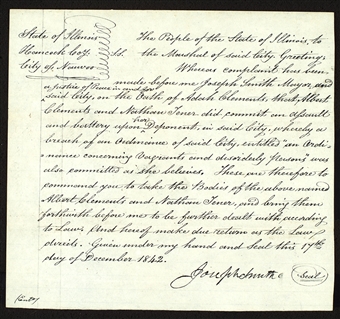 State of Illinois
Hancock Coy. Sct.
City of Nauvoo
The People of the State of Illinois, to
the Marshal of said City, Greeting,
Whereas complaint has been
made before me Joseph Smith Mayor,
a justice of Peace in and for
said City, on the Oath of Adah Clements, that Albert
Clements and Nathan Toner did commit an assault
and battery upon her Deponent, in said City, whereby a
breach of an Ordinance of said City, entitled an Ordi-
nance concerning Vagrants and disorderly persons was
also committed as she believes. These are therefore to
command you to take the Bodies of the above named
Albert Clements and Nathan Toner, and bring them
forthwith before me to be further dealt with according
to Law. And hereof make due return as the Law
directs. Given under my hand and Seal this 17th
day of December 1842.
Joseph Smith
Seal